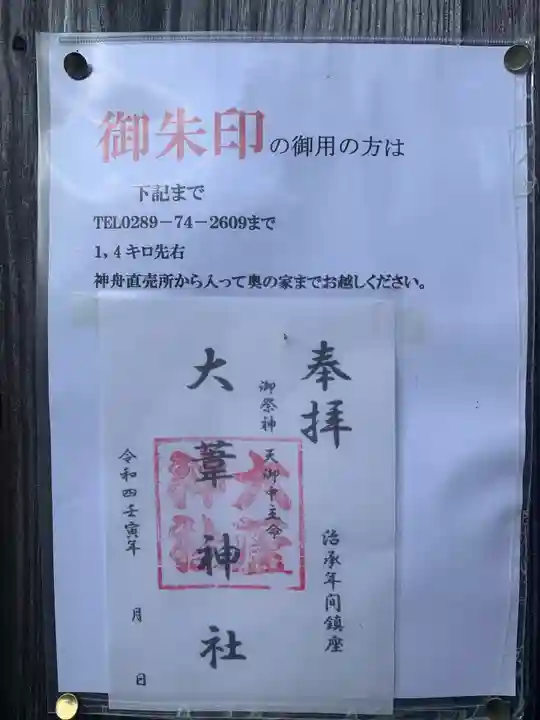 御朱印の御用の方は
下記まで
TEL0289－74－2609まで
1,4キロ先右
神舟直売所から入って奥の家までお越しください。
奉拝
治承年間鎮座
御祭神 天御中主命
大葦神社
令和四壬寅年 月 日
大葦
神社